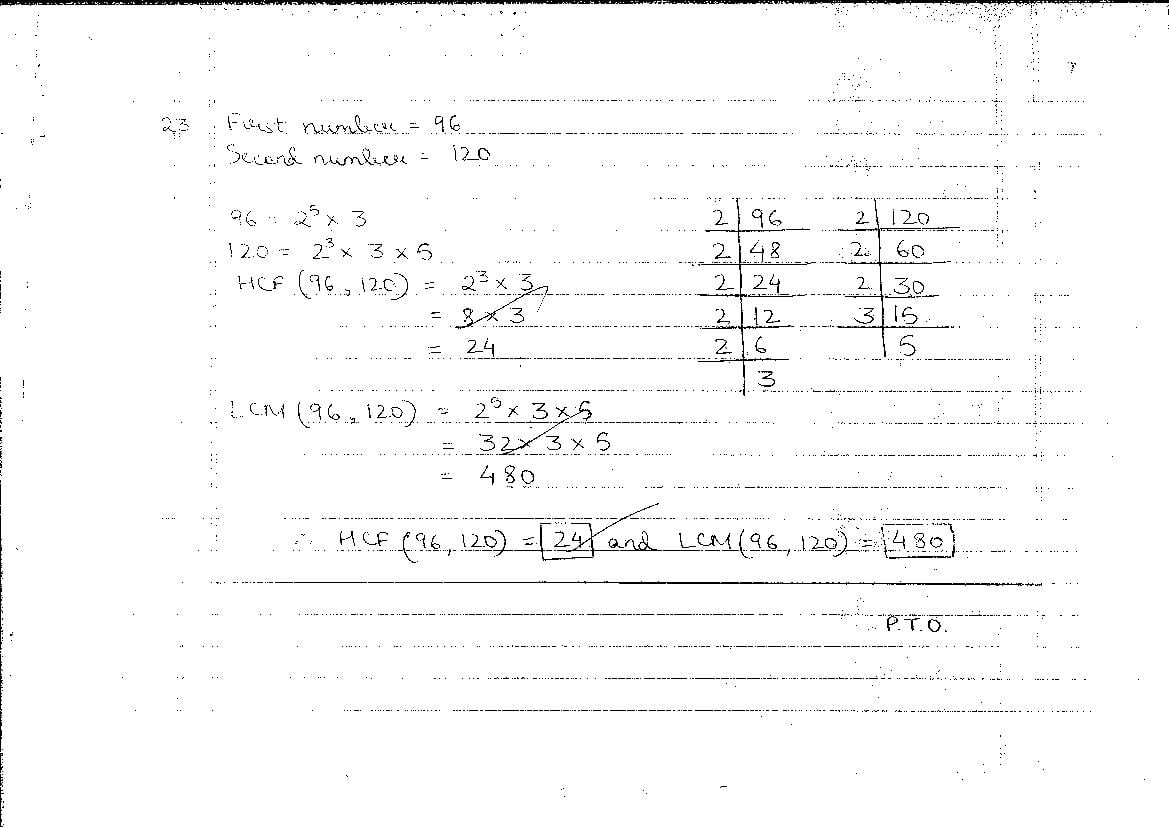 23 First number = 96
Second number = 120
96 = 2⁵ × 3
120 = 2³ × 3 × 5
HCF (96, 120) = 2³ × 3
= 8 × 3
= 24
2 | 96
2 | 48
2 | 24
2 | 12
2 | 6
3
2 | 120
2 | 60
2 | 30
3 | 15
5
LCM (96, 120) = 2⁵ × 3 × 5
= 32 × 3 × 5
= 480
∴ HCF (96, 120) = 24 and LCM (96, 120) = 480
P.T.O.